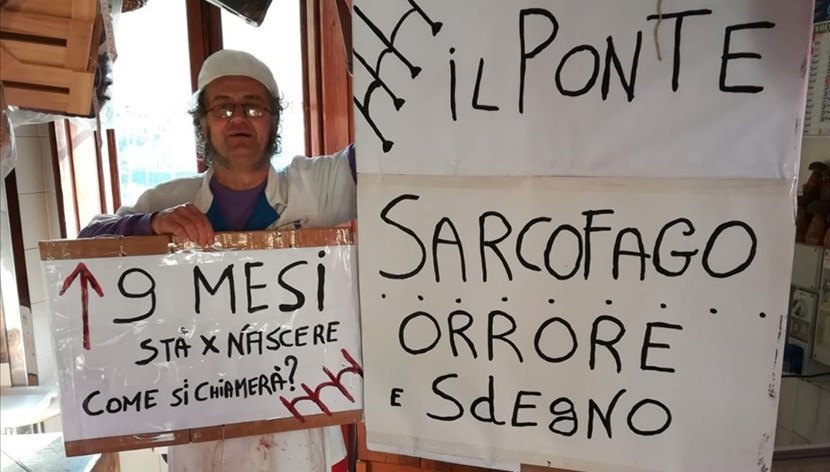 9 MESI
STÀ X NASCERE
COME SI CHIAMERÀ?
iL PONTE
SARCOFAGO
ORRORE
E SdEgNO